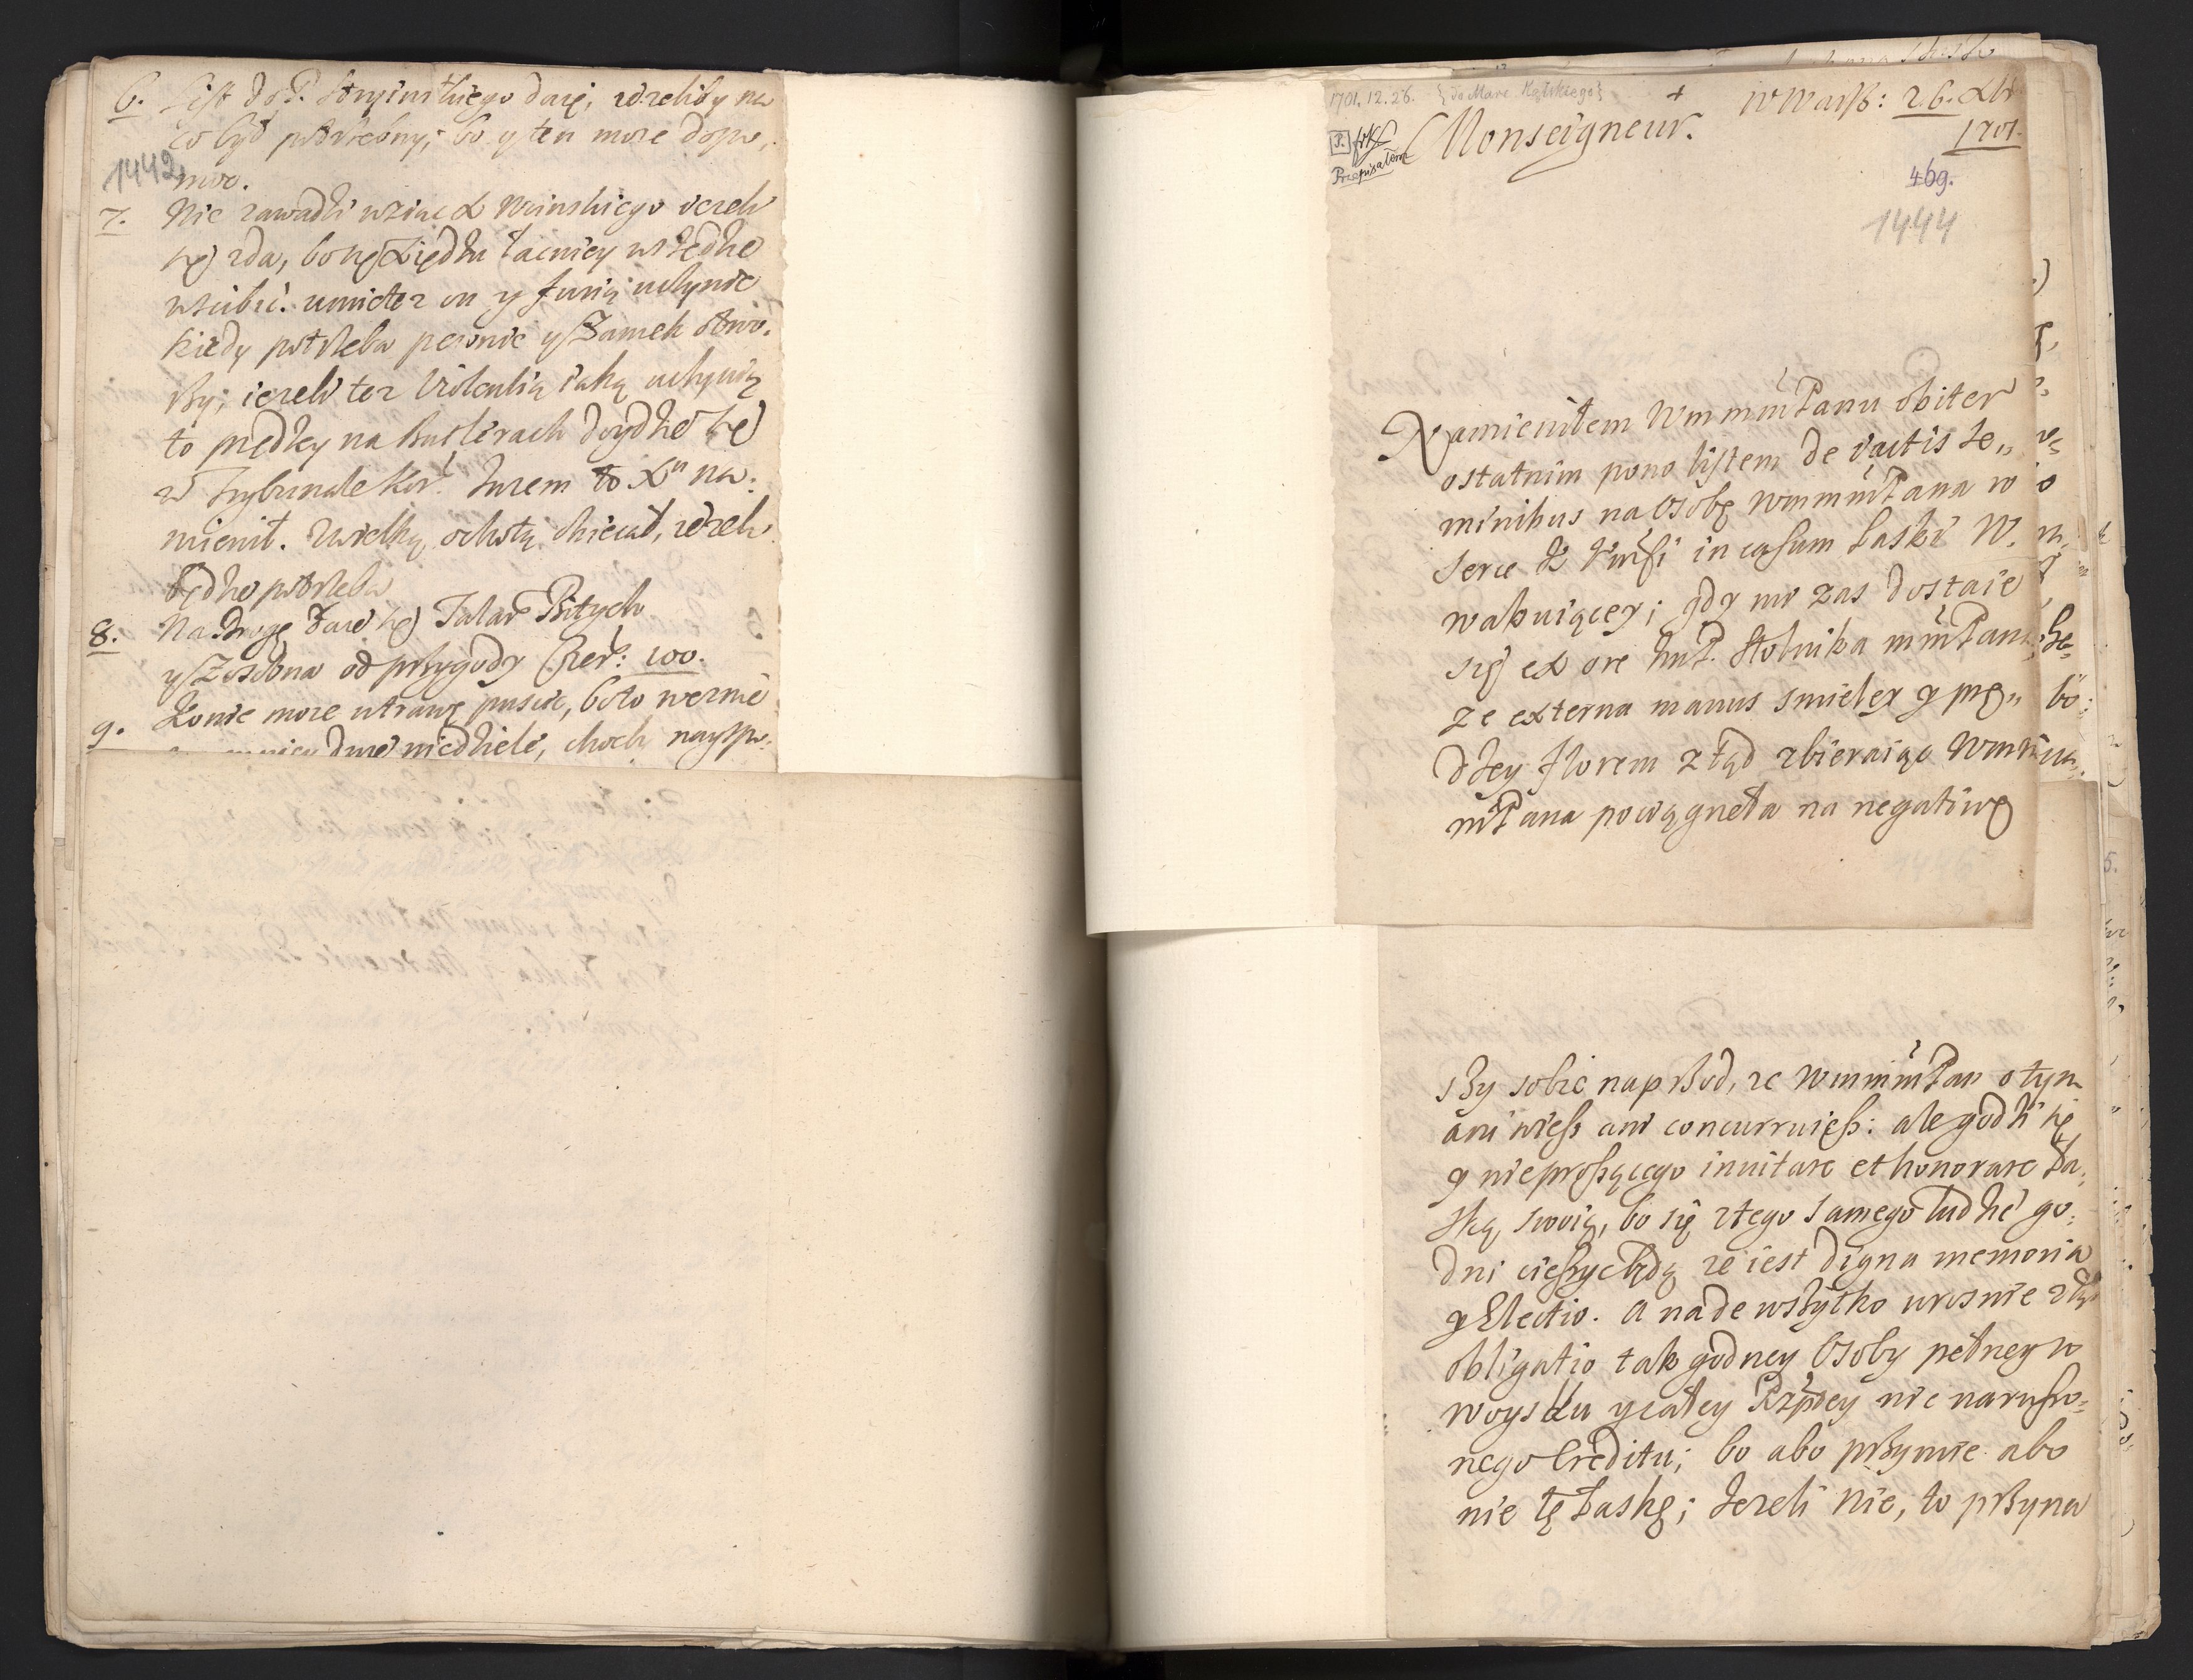 6. List do P. daię, ieżeliby na
co był potrzebny; bo y ten może dopo,
1442 moc.
7. Nie zawadzi wziąć X Woinskiego ieżeli
się zda, bo Xiędzu łacniey wszędzie
wścibić. umie też on y furią uczynić
kiedy potrzeba pewnie y Zamek otwo.
rzy; ieżeli też Violentią iaką uczynią
to prędzey na Butlerach doydzie się
w Trybunale Kor. Jużem to Xu na:
mienił. Wielką ochotą obiecał, ieżeli
będzie potrzeba
8. Na drogę daię się Talar Bitych
y Zosobna od przygody Czer: 100.
9. Konie może na trawę puscić, bo to
dwie niedziele, choch nayspo:
1701.12.26. {do Marc. Kątskiego} + W Warsz: 26. Xbr
1701.
[P.]
Przepisałem
Monseigneur.
469.
1444
Namieniłem Wm mmPanu obiter
ostatnim pono listem de iactis se,,
minibus na Osobę WmmmPana w
Serce in casum Łaski W.
wakuiącey; gdy mi zas dostaie
się ex ore ImP. Stolnika mmPana
ze externa manus smieley y prę,,
dzey florem ztąd zbieraiąc Wmm
mPana pociągneła na negatiwę
szy sobie naprzod, ze WmmmPan o tym
ani wiesz ani concurruiesz: ale godzi się
y nieproszącego inuitare et honorare Ła,
ską swoią, bo się z tego samego ludzie go:
dni cieszyć będą ze iest digna memoria
y Electio. A nade wszytko urosnie ztąd
obligatio tak godney Osoby pełney w
woysku y całey Rzptey nie narusso=
nego Creditu; bo abo przymie abo
nie tę Łaskę; Jezeli nie, to przyna